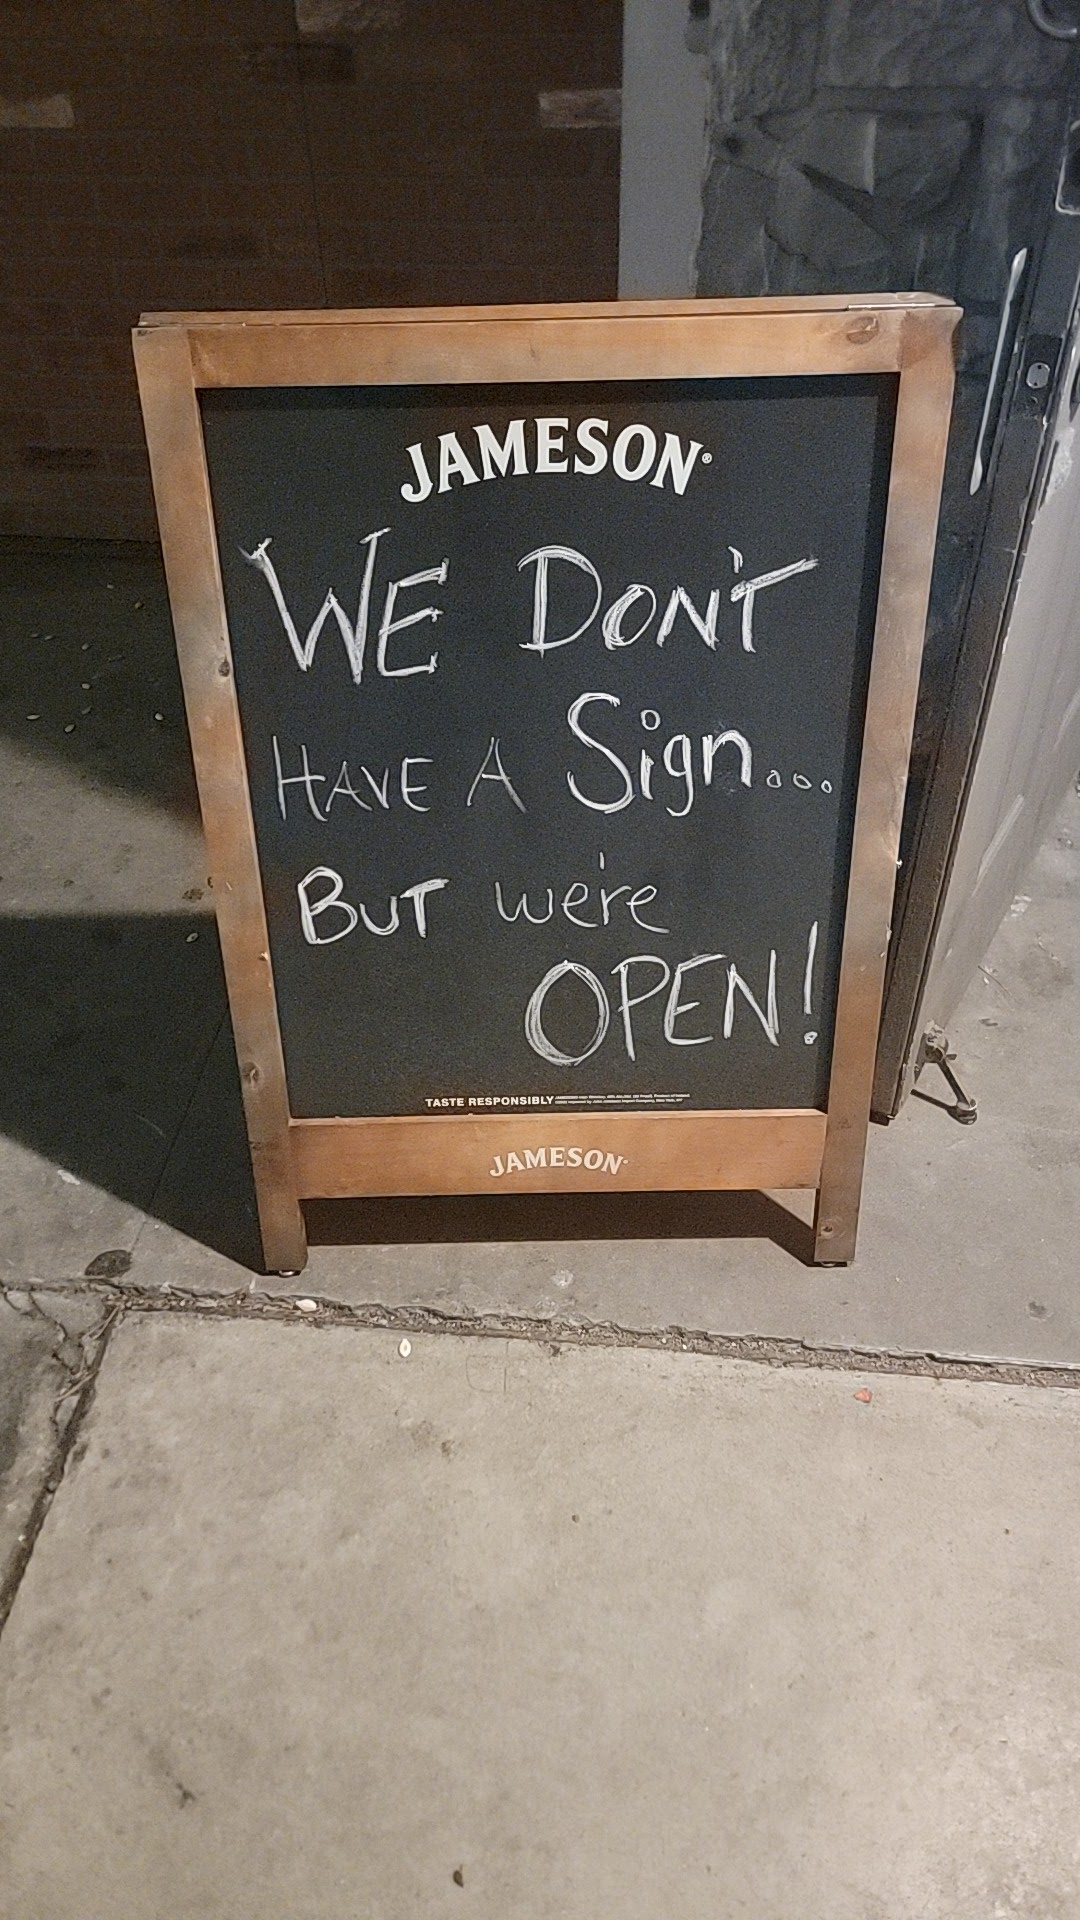 JAMESON®
WE DON'T
HAVE A Sign...
BUT we're
OPEN!
TASTE RESPONSIBLY
JAMESON